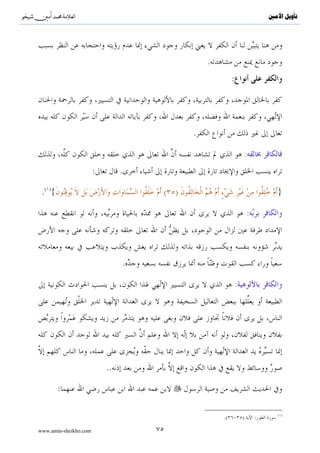 تأويل الأمين
العلامة محمد أمين شيخو
ومن هنا يتبيَّن لنا أن الكفر لا يعني إنكار وجود الشيء إنما عدم رؤيته واحتجابه عن النظر بسبب
وجود مانع يمنع من مشاهدته.
والكفر على أنواع:
كفر بالخالق الموجد، وكفر بالتربية، وكفر بالألوهية والوحدانية في التسيير، وكفر بالرحمة والحنان
الإلهي، وكفر بنعمة الله وفضله، وكفر بعدل الله، وكفر بآياته الدالة على أن سَيْر الكون كله بيده
تعالى إلى غير ذلك من أنواع الكفر.
فالكافر بخالقه: هو الذي لم تشاهد نفسه أنَّ الله تعالى هو الذي خلقه وخلق الكون كلَّه، ولذلك
تراه ينسب الخلق والإيجاد تارة إلى الطبيعة وتارة إلى أشياء أخرى. قال تعالى:
{أَمْ خُلِقُوا مِنْ غَيْرِ شَيْءٍ أَمْ هُمُ الْخَالِقُونَ (٣٥) أَمْ خَلَقُوا السَّمَاوَاتِ وَالْأَرْضَ بَل لَّا يُوقِنُونَ}(١).
والكافر بربِّه: هو الذي لا يرى أن الله تعالى هو ممدّه بالحياة ومربِّيه، وأنه لو انقطع عنه هذا
الإمداد طرفة عين لزال من الوجود، بل يظنُّ أن الله تعالى خلقه وتركه وشأنه على وجه الأرض
يدبِّر شؤونه بنفسه ويكسب رزقه بذاته ولذلك تراه يغش ويكذب ويتلاعب في بيعه ومعاملاته
سعياً وراء كسب القوت وظنّاً منه أنما يرزق نفسه بسعيه وجدِّه.
والكافر بالألوهية: هو الذي لا يرى التسيير الإلهي لهذا الكون، بل ينسب الحوادث الكونية إلى
الطبيعة أو يعلِّلها ببعض التعاليل السخيفة وهو لا يرى العدالة الإلهية تدير الخلق وتُهيمن على
الناس، بل يرى أن فلاناً تجاوز على فلان وبغى عليه وهو يتذمَّر من زيد ويشكو عَمْرواً ويتربَّص
بفلان وينافق لفلان، ولو أنه آمن بلا إلٓه إلا الله وعلم أنَّ السير كله بيد الله لوجد أن الكون كله
إنما تسيِّرهُ يد العدالة الإلهية وأن كل واحد إنما ينال حقّه ويُجزى على عمله، وما الناس كلهم إلاَّ
صورٌ ووسائط ولا يقع في هذا الكون واقع إلاَّ بأمر الله ومن بعد إذنه..
وفي الحديث الشريف من وصية الرسول ﷺ لابن عمه عبد الله ابن عباس رضي الله عنهما:
(١) سورة الطور: الآية (٣٥-٣٦).
٧٥
www.amin-sheikho.com